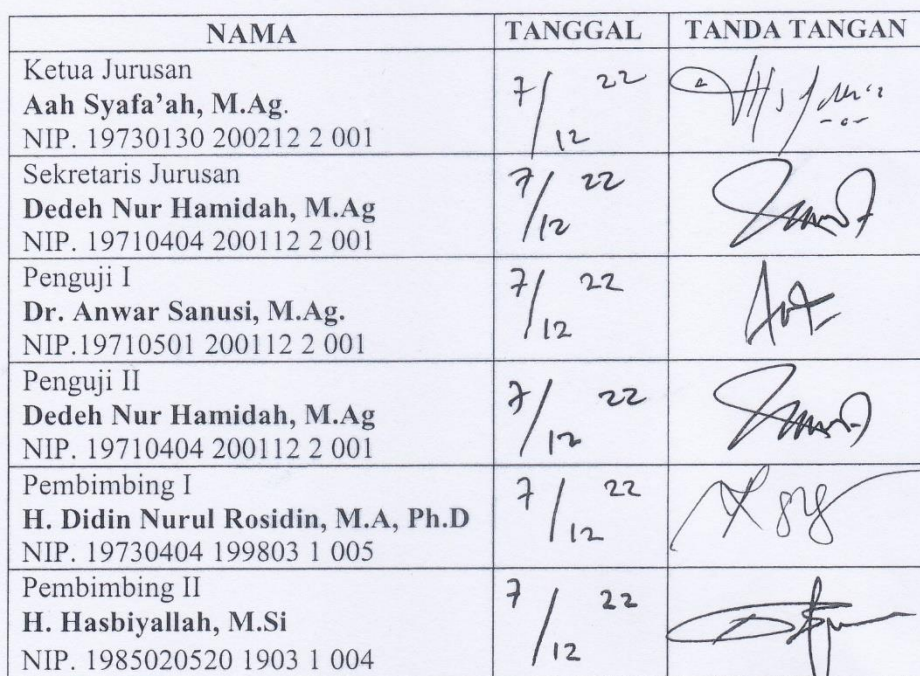 NAMA TANGGAL TANDA TANGAN
Ketua Jurusan
Aah Syafa'ah, M.Ag.
NIP. 19730130 200212 2 001
7/12 22
Sekretaris Jurusan
Dedeh Nur Hamidah, M.Ag
NIP. 19710404 200112 2 001
7/12 22
Penguji I
Dr. Anwar Sanusi, M.Ag.
NIP.19710501 200112 2 001
7/12 22
Penguji II
Dedeh Nur Hamidah, M.Ag
NIP. 19710404 200112 2 001
7/12 22
Pembimbing I
H. Didin Nurul Rosidin, M.A, Ph.D
NIP. 19730404 199803 1 005
7/12 22
Pembimbing II
H. Hasbiyallah, M.Si
NIP. 1985020520 1903 1 004
7/12 22